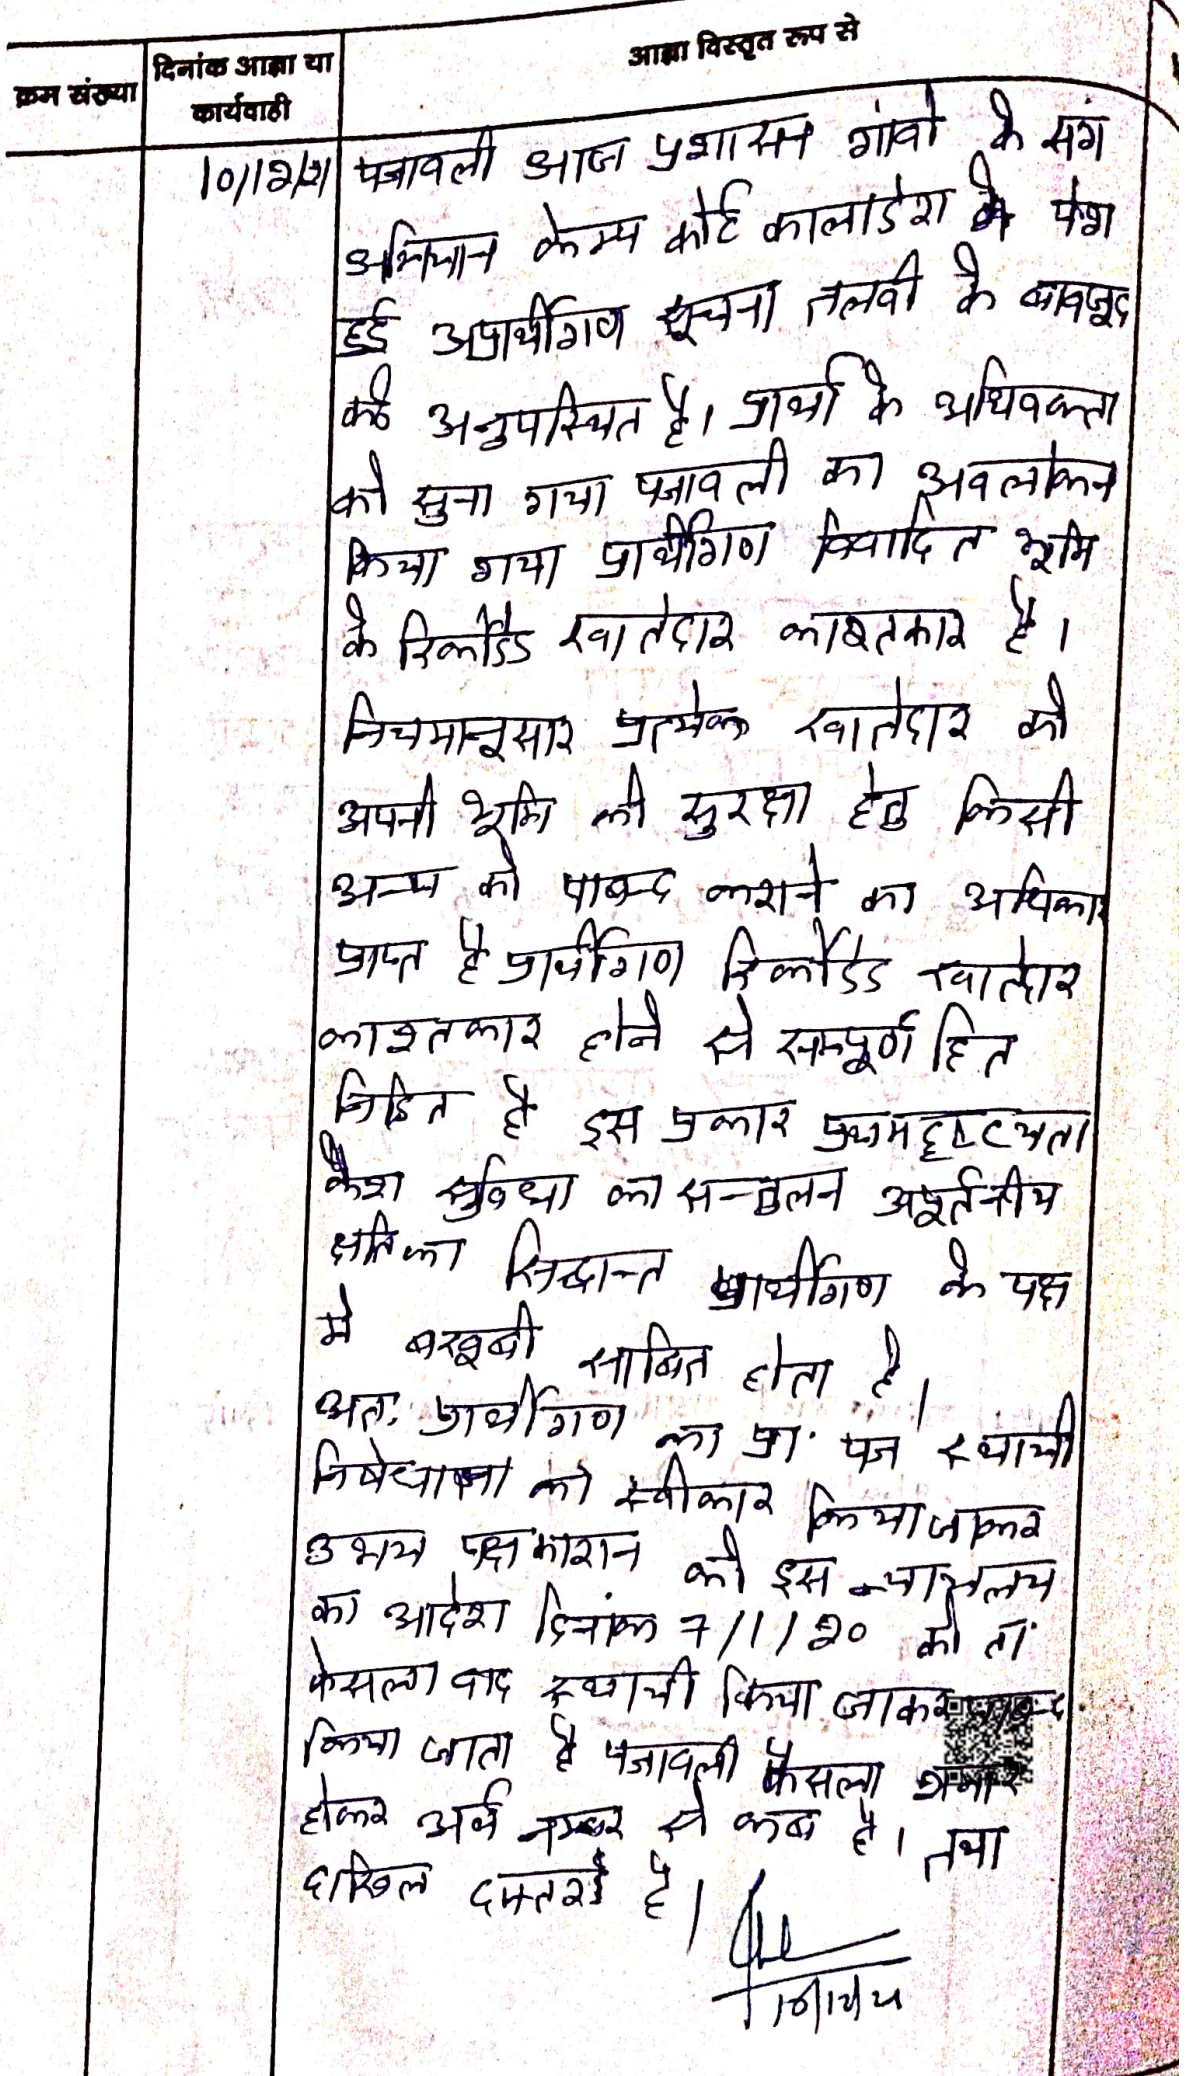 क्रम संख्या
दिनांक आज्ञा या
कार्यवाही
आज्ञा विस्तृत रूप से
10/12/21 पत्रावली आज प्रशासन गांवो के संग
अभियान केम्प कोर्ट कालाडेरा मे पेश
हुई अप्रार्थीगण सूचना तलवी के बावजूद
अनुपस्थित है। प्रार्थी के अधिवक्ता
को सुना गया पत्रावली का अवलोकन
किया गया प्रार्थीगण विवादित भूमि
के रिकोर्डेड खातेदार काष्तकार है।
नियमानुसार प्रत्येक खातेदार को
अपनी भूमि की सुरक्षा हेतु किसी
अन्य को पाबन्द कराने का अधिकार
प्राप्त है प्रार्थीगण रिकोर्डेड खातेदार
काश्तकार होने से सम्पूर्ण हित
निहित है इस प्रकार प्रथमदृष्टयता
केश सुविधा का सन्तुलन अपूर्तनीय
क्षति का सिद्धान्त प्रार्थीगण के पक्ष
मे बखूबी साबित होता है।
अतः प्रार्थीगण का प्रा. पत्र स्थायी
निषेधाज्ञा को स्वीकार किया जाकर
उभय पक्षकारान को इस न्यायालय
का आदेश दिनांक 7/1/20 को ता
फेसला वाद स्थायी किया जाकर पाबन्द
किया जाता है पत्रावली फैसला शुमार
होकर नम्बर से कम है। तथा
दाखिल दफ्तर है।